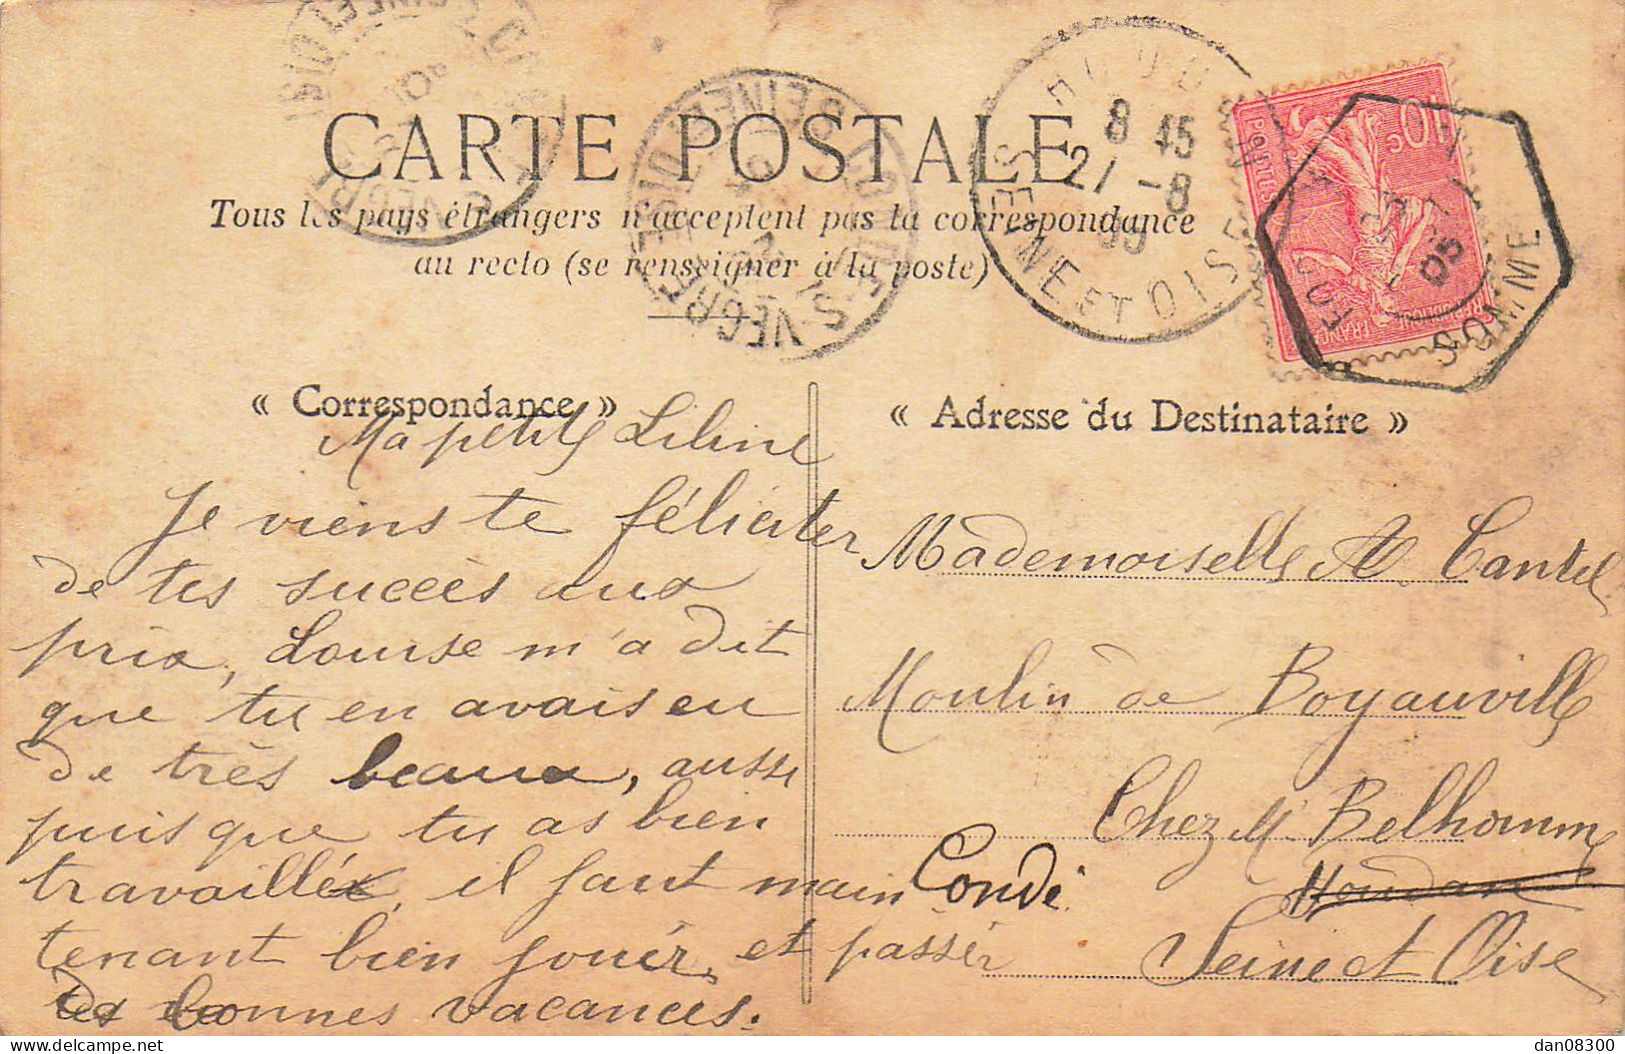 CARTE POSTALE
Tous les pays étrangers n'acceptent pas la correspondance
au recto (se renseigner à la poste)
8 45
21 -8
05
SEINE ET OISE
10c
POSTES
REPUBLIQUE
FRANÇAISE
05
SOMME
« Correspondance »
« Adresse du Destinataire »
Ma petite Liline
Je viens te féliciter
de tes succès aux
prix, Louise m'a dit
que tu en avais eu
de très beaux, aussi
puisque tu as bien
travaillée, il faut main
tenant bien jouer, et passer
de bonnes vacances.
Mademoiselle A. Cantel
Moulin de Boyauville
Chez M. Belhomme
Condé Houdan
Seine et Oise
delcampe.net
dan08300